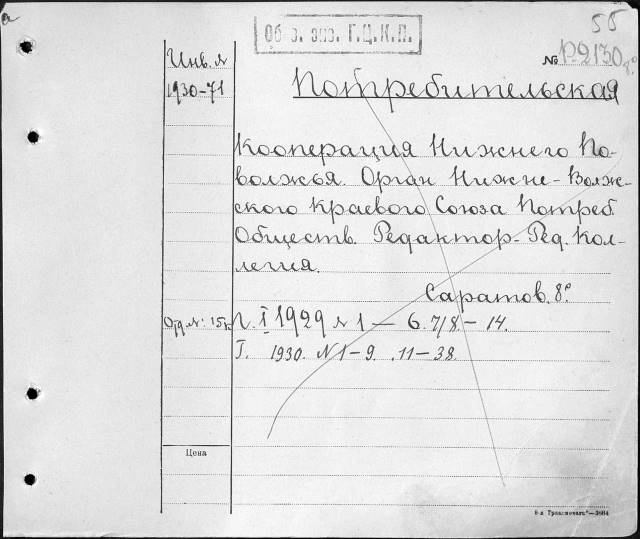 55
Обяз. экз. Г.Ц.К.П.
№ P2130
8°
Инв. №
1930-71
Потребительская
Кооперация Нижнего По-
волжья. Орган Нижне-Волж-
ского Краевого Союза Потреб.
Обществ. Редактор-Ред. Кол-
легия.
Саратов. 8°
Отд. №: 15к
Г. I 1929 № 1 — 6. 7/8. — 14.
Г. 1930. N 1-9. .11-38.
Цена